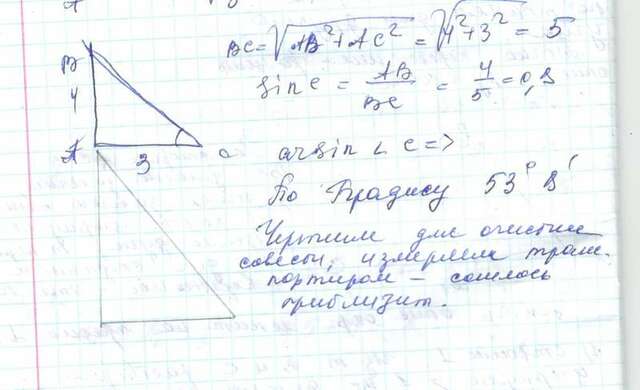 BC = √AB² + AC² = √4² + 3² = 5
B
4
sin C = AB/BC = 4/5 = 0,8
A
3
C
arsin ∠ C =>
По Брадису 53° 8'
Чертим для очистки
совести, измеряем транс-
портиром – сошлось
приблизит.